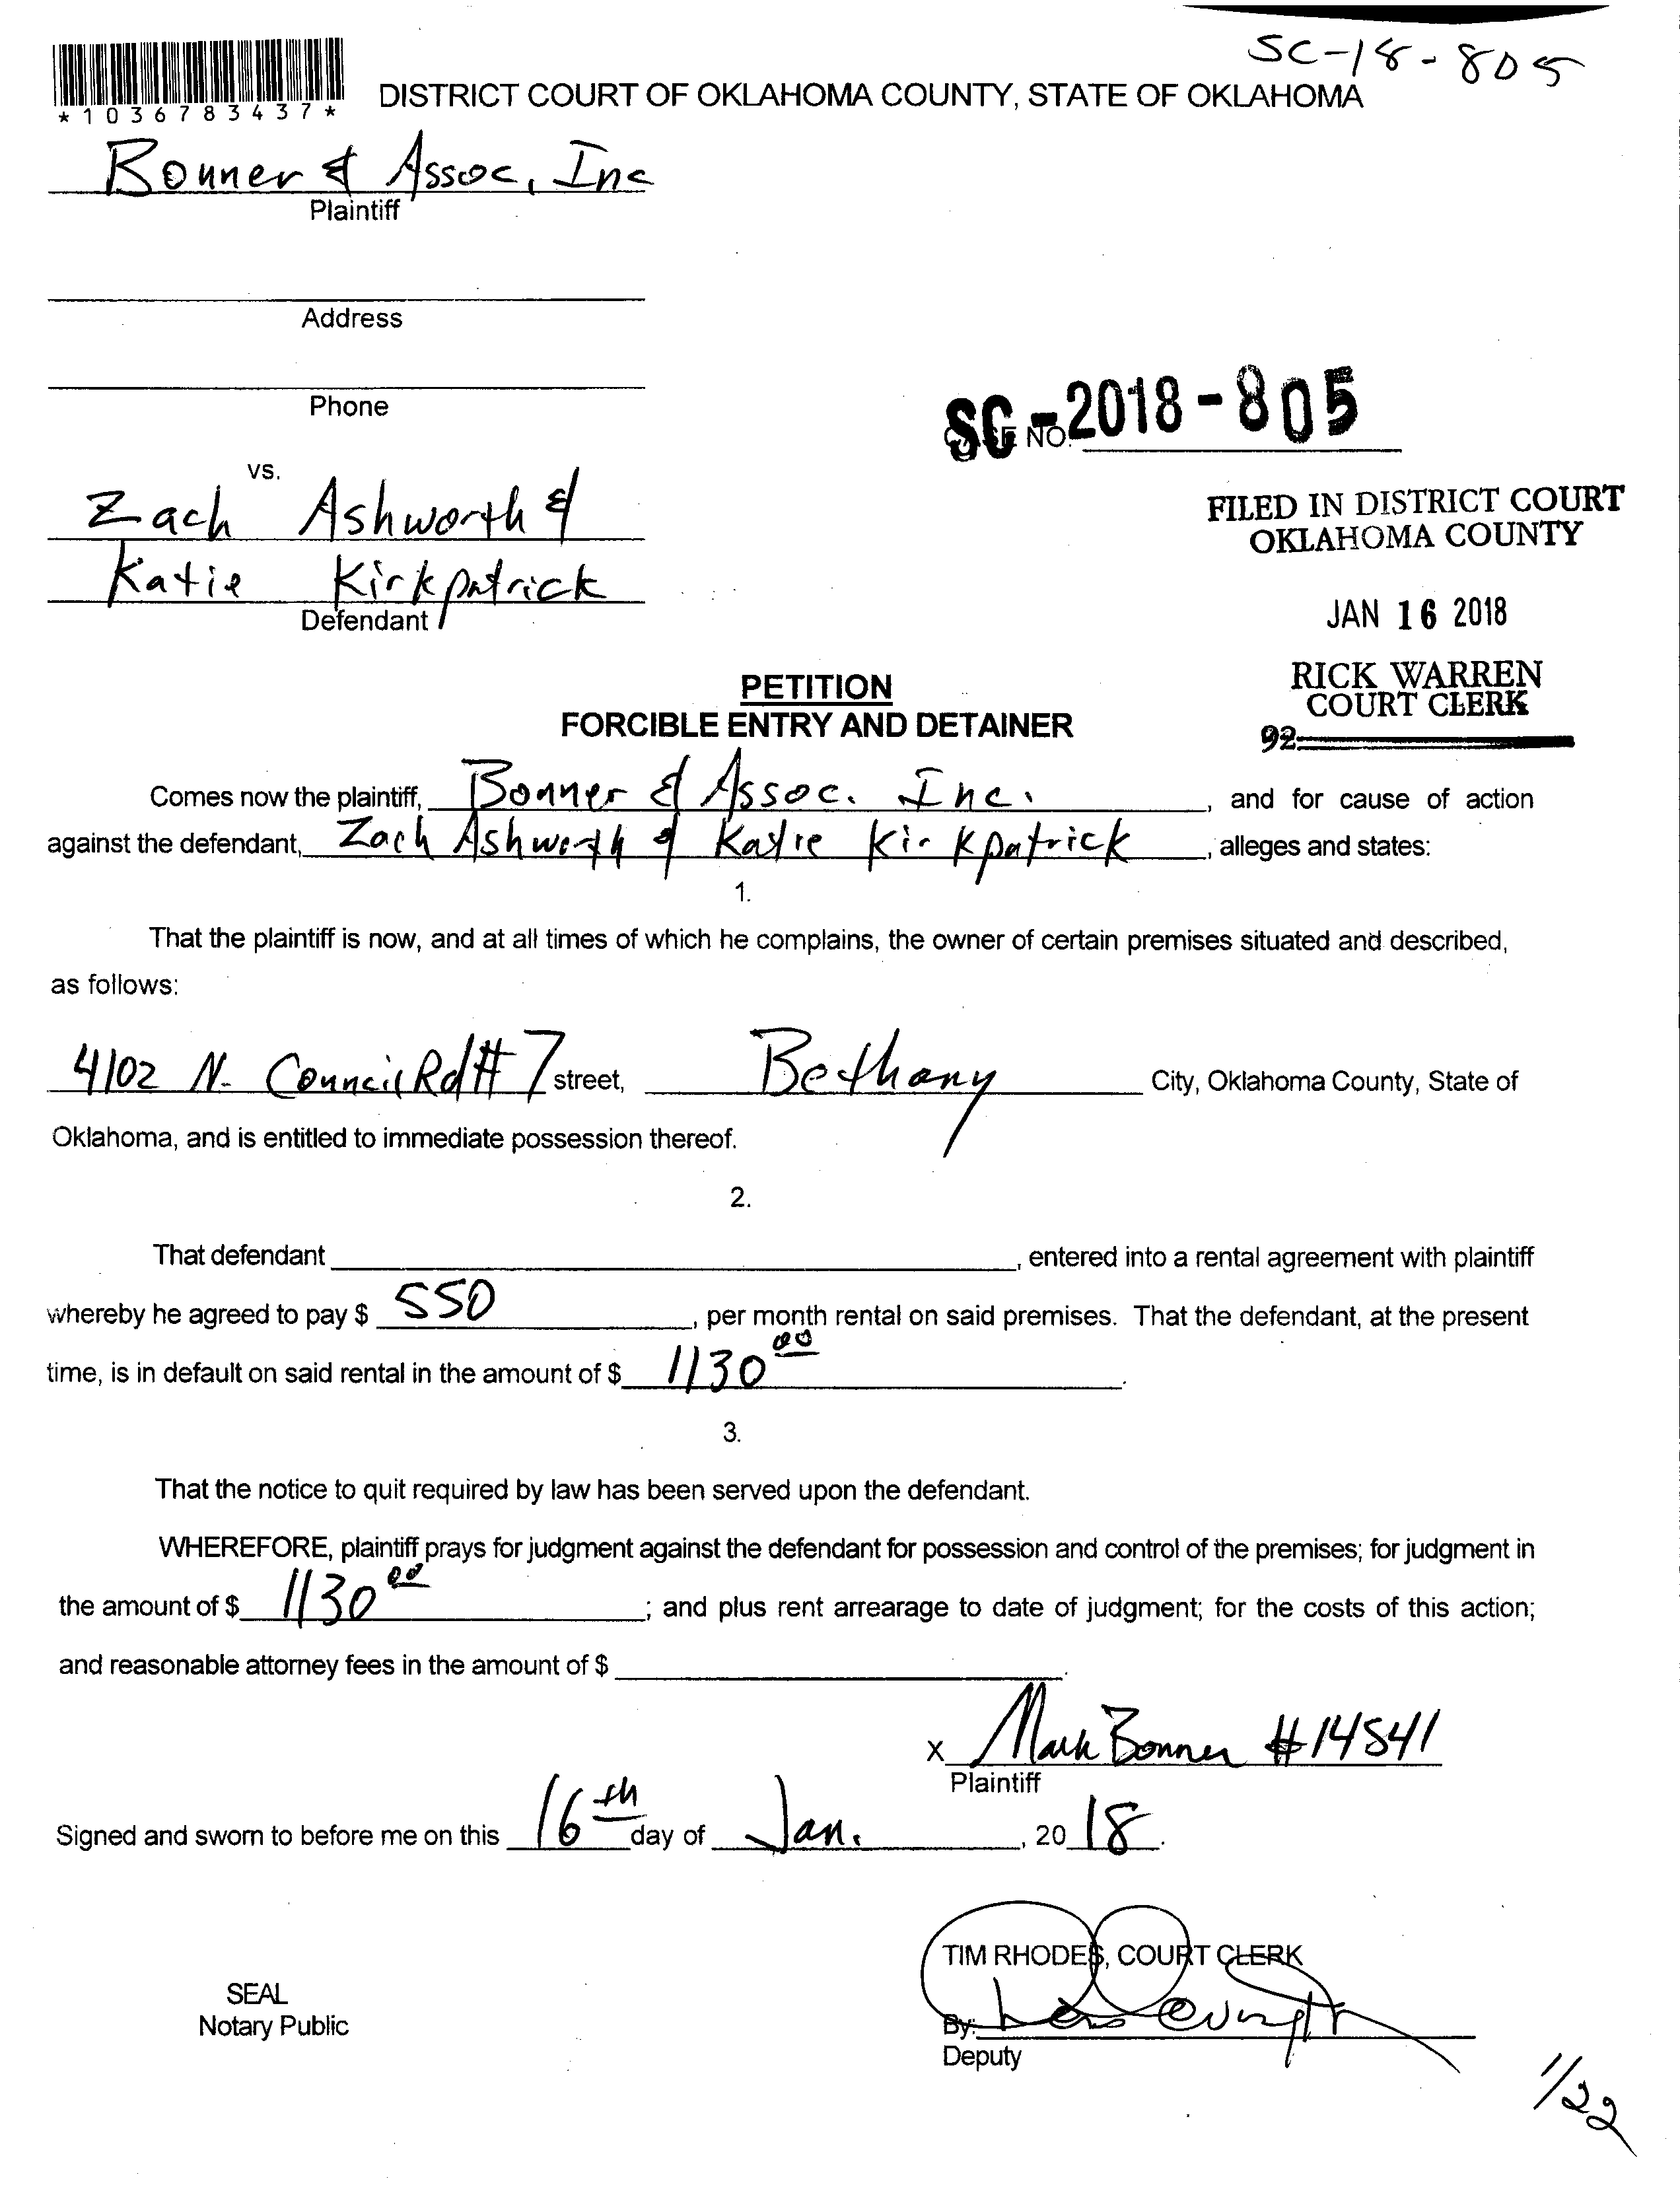 SC-18-805
*1036783437*
DISTRICT COURT OF OKLAHOMA COUNTY, STATE OF OKLAHOMA
Bonner & Assoc, Inc
Plaintiff
Address
Phone
SC-2018-805
CASE NO.
vs.
Zach Ashworth &
Katie Kirkpatrick
Defendant
FILED IN DISTRICT COURT
OKLAHOMA COUNTY
JAN 16 2018
RICK WARREN
COURT CLERK
92
PETITION
FORCIBLE ENTRY AND DETAINER
Comes now the plaintiff, Bonner & Assoc. Inc. , and for cause of action
against the defendant, Zach Ashworth & Katie Kirkpatrick , alleges and states:
1.
That the plaintiff is now, and at all times of which he complains, the owner of certain premises situated and described,
as follows:
4102 N. Council Rd # 7 street, Bethany City, Oklahoma County, State of
Oklahoma, and is entitled to immediate possession thereof.
2.
That defendant , entered into a rental agreement with plaintiff
whereby he agreed to pay $ 550 , per month rental on said premises. That the defendant, at the present
time, is in default on said rental in the amount of $ 1130 00 .
3.
That the notice to quit required by law has been served upon the defendant.
WHEREFORE, plaintiff prays for judgment against the defendant for possession and control of the premises; for judgment in
the amount of $ 1130 00 ; and plus rent arrearage to date of judgment; for the costs of this action;
and reasonable attorney fees in the amount of $ .
x Mark Bonner #14541
Plaintiff
Signed and sworn to before me on this 16th day of Jan. , 20 18 .
TIM RHODES, COURT CLERK
SEAL
Notary Public
By:
Deputy
1/22